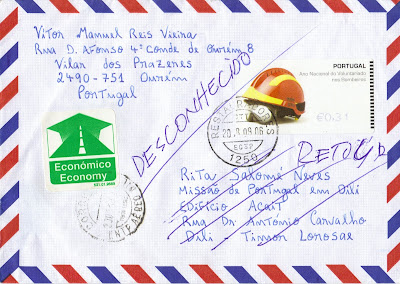 Vitor Manuel Reis Vieira
Rua D. Afonso 4º Conde de Ourém, 8
Vilar dos Prazeres
2490-751 Ourém
Portugal
PORTUGAL
Ano Nacional do Voluntariado
nos Bombeiros
€0,31
20.
1250
DESCONHECIDO
Económico
Economy
Rita Salomé Neves
Missão de Portugal em Dili
Edifício Acait
Rua Dr. António Carvalho
Dili - Timor Lorosae